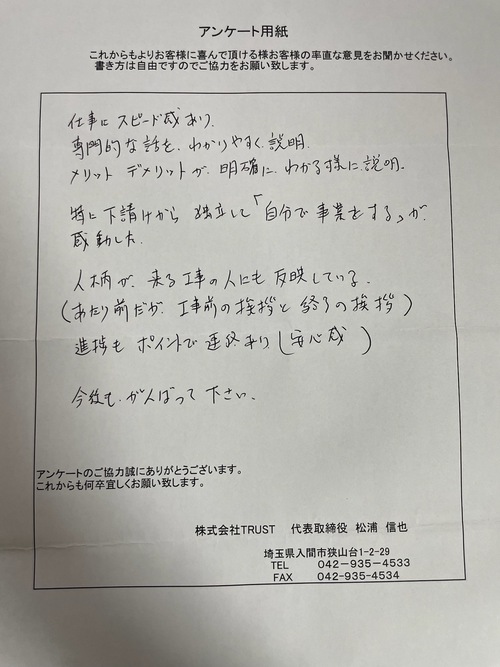 アンケート用紙
これからもよりお客様に喜んで頂ける様お客様の率直な意見をお聞かせください。
書き方は自由ですのでご協力をお願い致します。
仕事にスピード感あり
専門的な話を、わかりやすく説明
メリット デメリットが、明確に、わかる様に説明。
特に下請けから 独立して「自分で事業をする」が、
感動した。
人柄が、来る工事の人にも反映している。
(あたり前だが、工事前の挨拶と終了の挨拶)
進捗もポイントで連絡あり(安心感)
今後も、がんばって下さい。
アンケートのご協力誠にありがとうございます。
これからも何卒宜しくお願い致します。
株式会社TRUST 代表取締役 松浦 信也
埼玉県入間市狭山台1-2-29
TEL 042-935-4533
FAX 042-935-4534